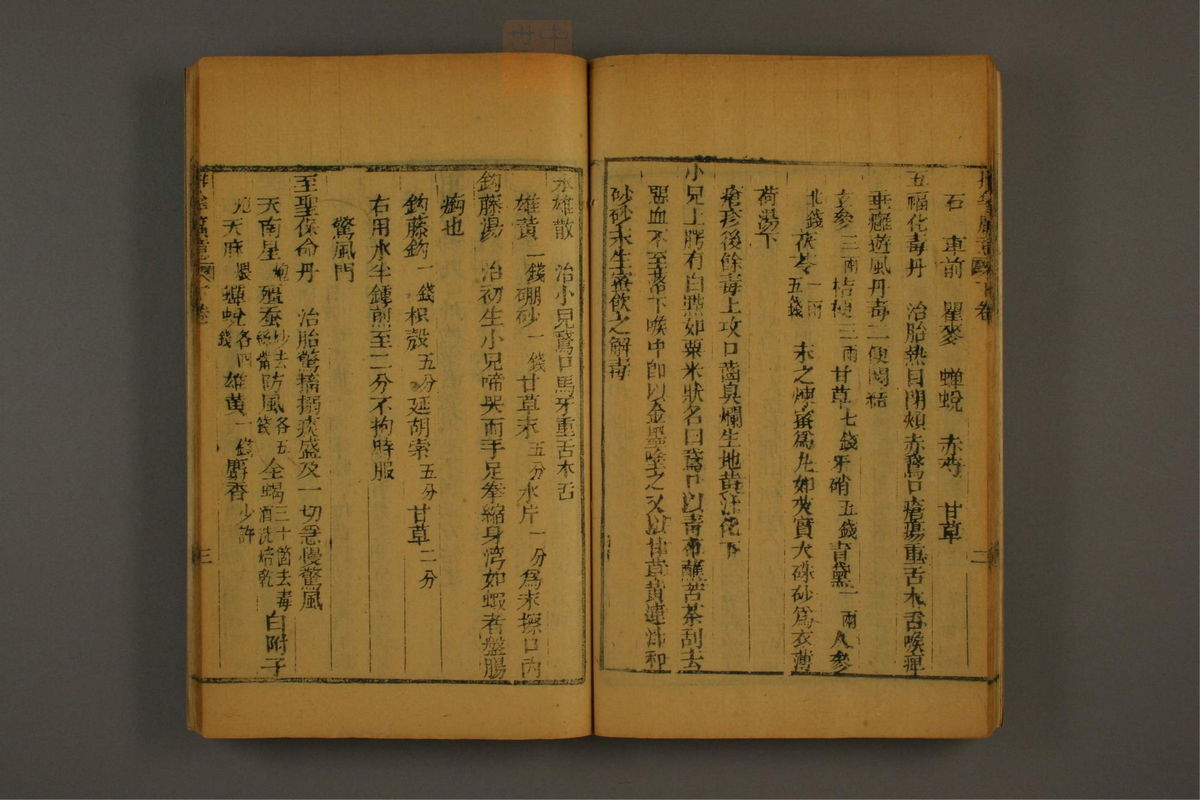 石　車前　瞿麥　蟬蛻　赤芍　甘草
五福化毒丹　治胎熱目閉頰赤鵞口瘡瘍重舌木舌喉痺
垂癰遊風丹毒二便閉結
玄參三兩桔梗三兩甘草七錢牙硝五錢青黛一兩人參
北錢茯苓一兩五錢　末之煉蜜爲丸如芡實大硃砂爲衣薄
荷湯下
瘡疹後餘毒上攻口齒臭爛生地黄汁化下
小兒上腭有白點如粟米狀名曰鵞口以青布蘸苦茶刮去
惡血不至落下喉中即以金墨塗之又以甘草黄連汁和
砂砂末生蜜飲之解毒
二
氷雄散　治小兒鵞口馬牙重舌木舌
雄黄一錢硼砂一錢甘草末五分氷片一分爲末擦口内
鈎藤湯　治初生小兒啼哭而手足拳縮身灣如蝦者盤腸
痛也
鈎藤鈎一錢枳殻五分延胡索五分甘草二分
右用水半鍾煎至二分不拘時服
驚風門
至聖保命丹　治胎驚搐搦痰盛及一切急慢驚風
天南星炮殭蚕炒去絲嘴防風各五錢全蝎三十箇去毒酒洗焙乾白附子
炮天麻煨蟬蛻各四錢雄黄一錢麝香少許
三